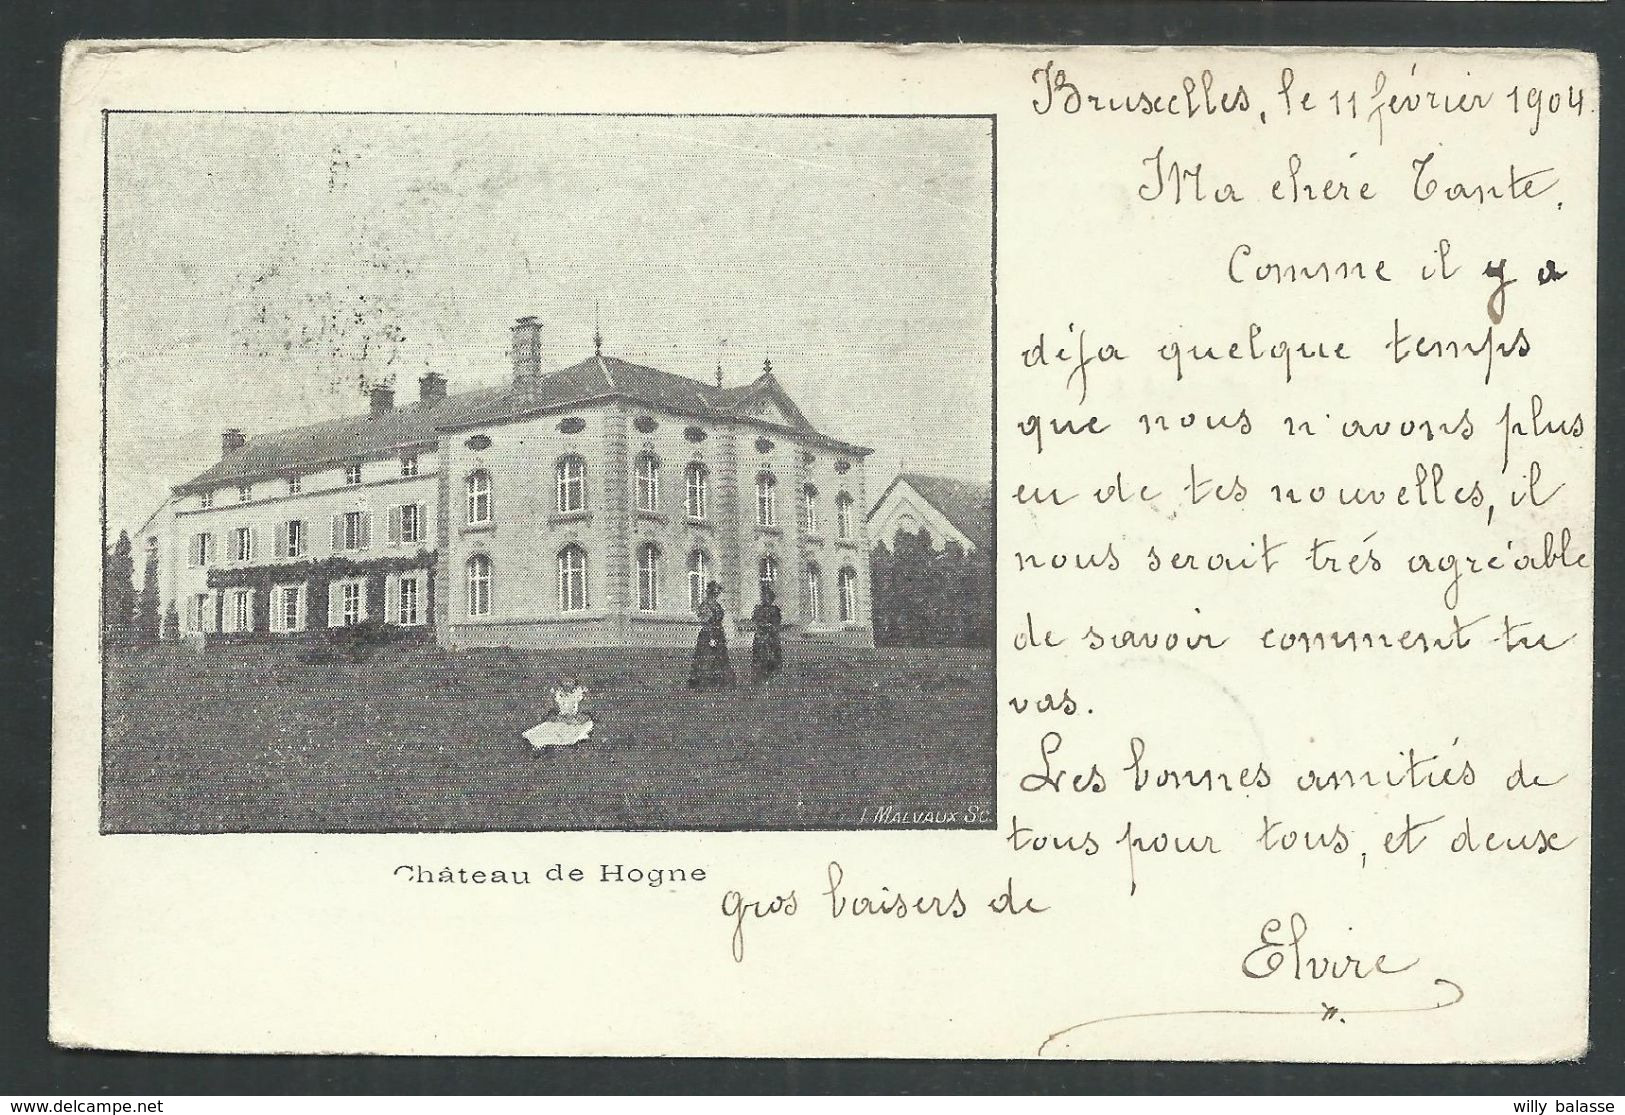 Bruxelles, le 11 février 1904.
Ma chére Tante,
Comme il y a
déja quelque temps
que nous n'avons plus
eu de tes nouvelles, il
nous serait trés agréable
de savoir comment tu
vas.
Les bonnes amitiés de
tous pour tous, et deux
gros baisers de
Elvire
J. MALVAUX SC
Château de Hogne
delcampe.net
willy balasse